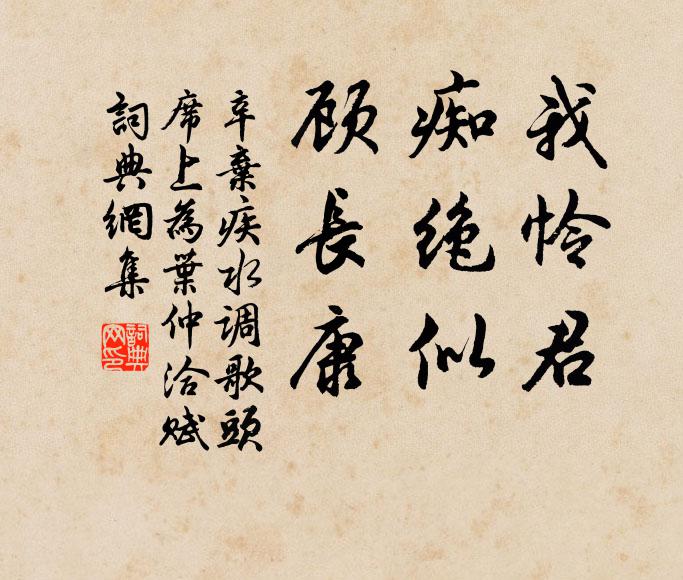 我怜君
痴绝似
顾長康
辛棄疾水调歌頭
席上為葉仲洽赋
詞典網集
詞典
网印